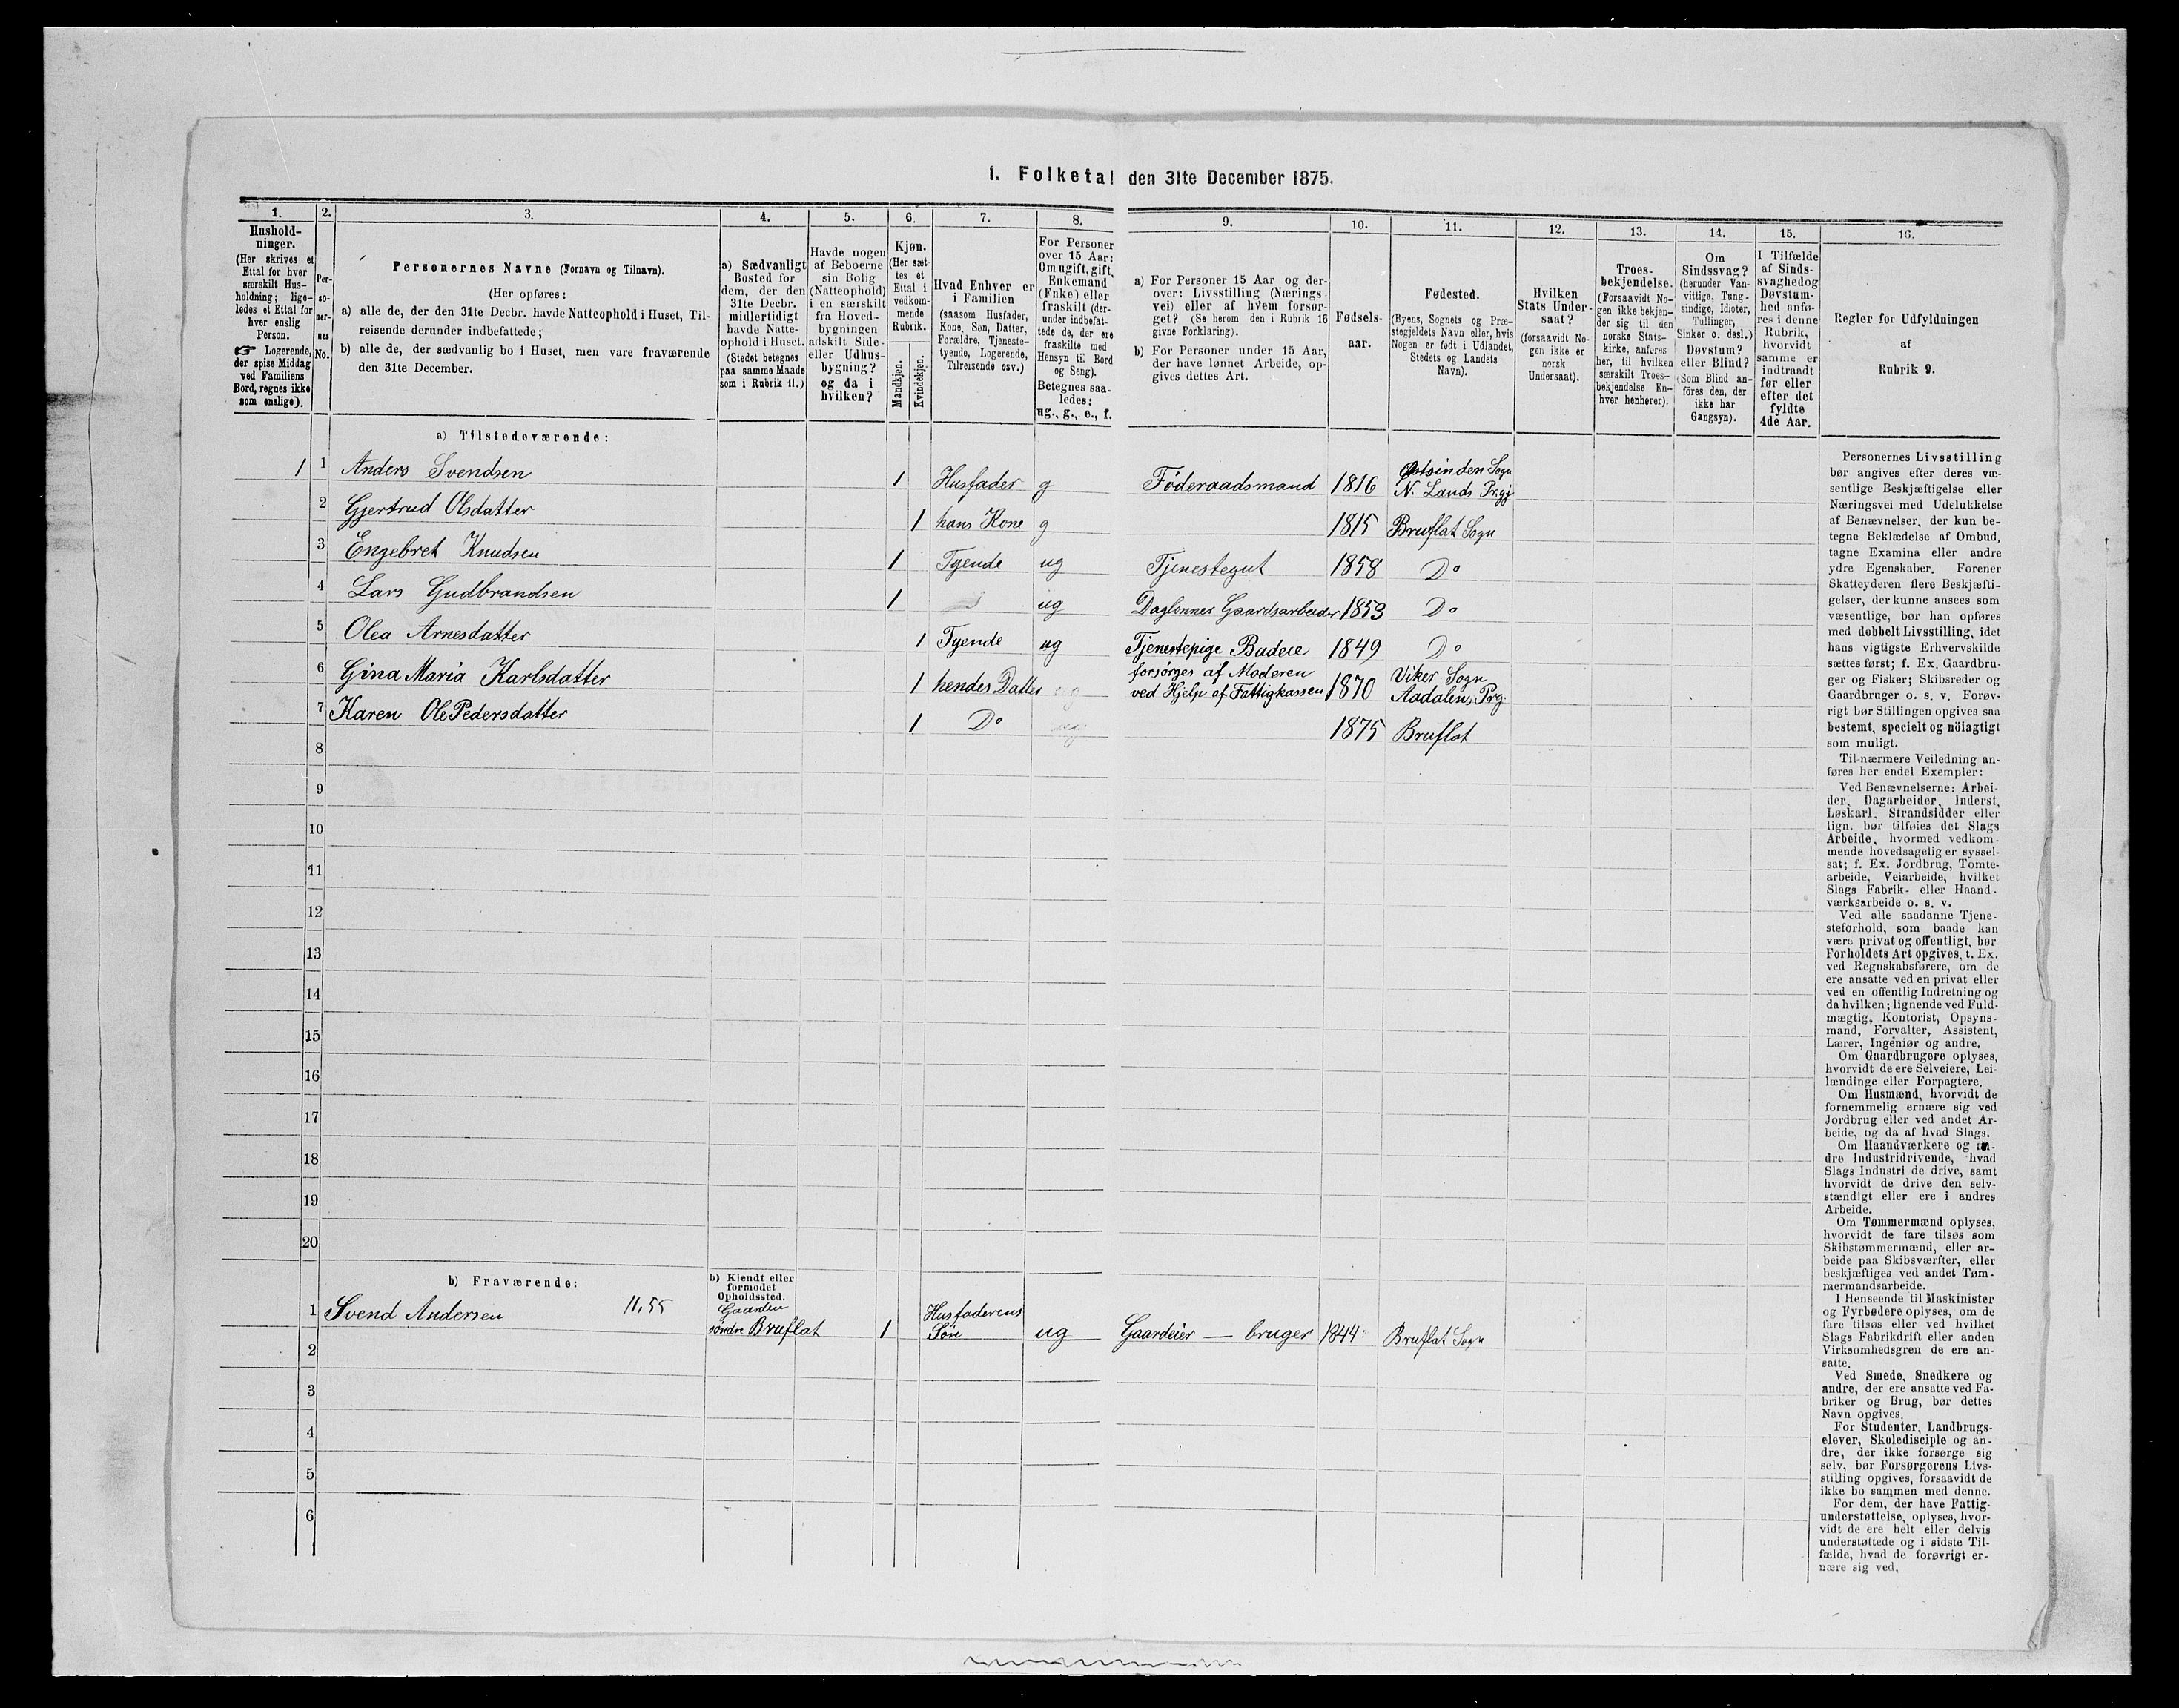 1. Folketal den 31te December 1875.
1.
2.
3.
4.
5.
6.
7.
8.
9.
10.
11.
12.
13.
14.
15.
16.
Hushold-
ninger.
(Her skrives et
Ettal for hver
særskilt Hus-
holdning; lige-
ledes et Ettal for
hver enslig
Person.
☞ Logerende,
der spise Middag
ved Familiens
Bord, regnes ikke
som enslige).
Per-
so-
ner-
nes
No.
Personernes Navne (Fornavn og Tilnavn).
(Her opføres:
a) alle de, der den 31te Decbr. havde Natteophold i Huset, Til-
reisende derunder indbefattede;
b) alle de, der sædvanlig bo i Huset, men vare fraværende
den 31te December.
a) Sædvanligt
Bosted for
dem, der den
31te Decbr.
midlertidigt
havde Natte-
ophold i Huset.
(Stedet betegnes
paa samme Maade
som i Rubrik 11.)
Havde nogen
af Beboerne
sin Bolig
(Natteophold)
i en særskilt
fra Hoved-
bygningen
adskilt Side-
eller Udhus-
bygning?
og da i
hvilken?
Kjøn.
(Her sæt-
tes et
Ettal i
vedkom-
mende
Rubrik.
Mandkjøn.
Kvindekjøn.
Hvad Enhver er
i Familien
(saasom Husfader,
Kone, Søn, Datter,
Forældre, Tjeneste-
tyende, Logerende,
Tilreisende osv.)
For Personer
over 15 Aar:
Om ugift, gift,
Enkemand
(Enke) eller
fraskilt (der-
under indbefat-
tede de, der ere
fraskilte med
Hensyn til Bord
og Seng).
Betegnes saa-
ledes:
ug., g., e., f.
a) For Personer 15 Aar og der-
over: Livsstilling (Nærings-
vei) eller af hvem forsør-
get? (Se herom den i Rubrik 16
givne Forklaring).
b) For Personer under 15 Aar,
der have lønnet Arbeide, op-
gives dettes Art.
Fødsels-
aar.
Fødested.
(Byens, Sognets og Præ-
stegjeldets Navn eller, hvis
Nogen er født i Udlandet,
Stedets og Landets
Navn).
Hvilken
Stats Under-
saat?
(forsaavidt No-
gen ikke er
norsk
Undersaat).
Troes-
bekjendelse.
(Forsaavidt No-
gen ikke bekjen-
der sig til den
norske Stats-
kirke, anføres
her, til hvilken
særskilt Troes-
bekjendelse En-
hver henhører).
Om
Sindssvag?
(herunder Van-
vittige, Tung-
sindige, Idioter,
Tullinger,
Sinker o. desl.)
Døvstum?
eller Blind?
(Som Blind an-
føres den, der
ikke har
Gangsyn).
I Tilfælde
af Sinds-
svaghed og
Døvstum-
hed anfø-
res i denne
Rubrik,
hvorvidt
samme er
indtraadt
før eller
efter det
fyldte
4de Aar.
Regler for Udfyldningen
af
Rubrik 9.
a) Tilstedeværende:
1 1 Anders Svendsen 1 Husfader g Föderaadsmand 1816 Østsinden Sogn
N. Lands Prgj
2 Gjertrud Olsdatter 1 hans Kone g 1815 Bruflat Sogn
3 Engebret Knudsen 1 Tyende ug Tjenestegut 1858 Do
4 Lars Gudbrandsen 1 ug Daglønner Gaardsarbeider 1853 Do
5 Olea Arnesdatter 1 Tyende ug Tjenestepige Budeie 1849 Do
6 Gina Maria Karlsdatter 1 hendes Datter forsørges af Moderen
ved Hjelp af Fattigkassen 1870 Viker Sogn
Aadalens Prg.
7 Karen OlePedersdatter 1 Do ug 1875 Bruflat
8
9
10
11
12
13
14
15
16
17
18
19
20
b) Fraværende:
b) Kjendt eller
formodet
Opholdssted.
1 Svend Andersen 11,55 Gaarden
søndre Bruflat 1 Husfaderens
Søn ug Gaardeier — bruger 1844 Bruflat Sogn
2
3
4
5
6
Personernes Livsstilling
bør angives efter deres væ-
sentlige Beskjæftigelse eller
Næringsvei med Udelukkelse
af Benævnelser, der kun be-
tegne Beklædelse af Ombud,
tagne Examina eller andre
ydre Egenskaber. Forener
Skatteyderen flere Beskjæfti-
gelser, der kunne ansees som
væsentlige, bør han opføres
med dobbelt Livsstilling, idet
hans vigtigste Erhvervskilde
sættes først; f. Ex. Gaardbru-
ger og Fisker; Skibsreder og
Gaardbruger o. s. v. Forøv-
rigt bør Stillingen opgives saa
bestemt, specielt og nöiagtigt
som muligt.
Til nærmere Veiledning an-
føres her endel Exempler:
Ved Benævnelserne: Arbei-
der, Dagarbeider, Inderst,
Løskarl, Strandsidder eller
lign. bør tilføies det Slags
Arbeide, hvormed vedkom-
mende hovedsagelig er syssel-
sat; f. Ex. Jordbrug, Tomte-
arbeide, Veiarbeide, hvilket
Slags Fabrik- eller Haand-
værksarbeide o. s. v.
Ved alle saadanne Tjene-
steforhold, som baade kan
være privat og offentligt, bør
Forholdets Art opgives, t. Ex.
ved Regnskabsførere, om de
ere ansatte ved en privat eller
ved en offentlig Indretning og
da hvilken; lignende ved Fuld-
mægtig, Kontorist, Opsyns-
mand, Forvalter, Assistent,
Lærer, Ingeniør og andre.
Om Gaardbrugere oplyses,
hvorvidt de ere Selveiere, Lei-
lændinge eller Forpagtere.
Om Husmænd, hvorvidt de
fornemmelig ernære sig ved
Jordbrug eller ved andet Ar-
beide, og da af hvad Slags.
Om Haandværkere og an-
dre Industridrivende, hvad
Slags Industri de drive, samt
hvorvidt de drive den selv-
stændigt eller ere i andres
Arbeide.
Om Tømmermænd oplyses,
hvorvidt de fare tilsøs som
Skibstømmermænd, eller ar-
beide paa Skibsværfter, eller
beskjæftiges ved andet Tøm-
mermandsarbeide.
I Henseende til Maskinister
og Fyrbødere oplyses, om de
fare tilsøs eller ved hvilket
Slags Fabrikdrift eller anden
Virksomhedsgren de ere an-
satte.
Ved Smede, Snedkere og
andre, der ere ansatte ved Fa-
briker og Brug, bør dettes
Navn opgives.
For Studenter, Landbrugs-
elever, Skoledisciple og an-
dre, der ikke forsørge sig
selv, bør Forsørgerens Livs-
stilling opgives, forsaavidt de
ikke bo sammen med denne.
For dem, der have Fattig-
understøttelse, oplyses, hvor-
vidt de ere helt eller delvis
understøttede og i sidste Til-
fælde, hvad de forøvrigt er-
nære sig ved.